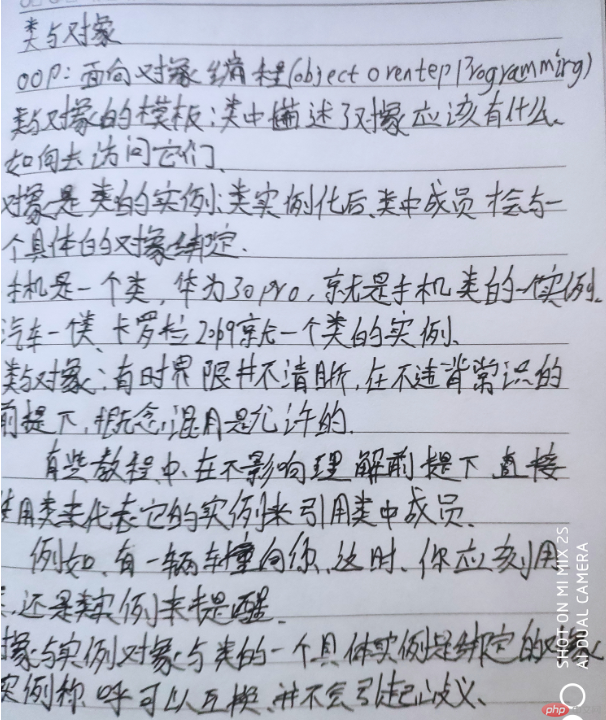 类与对象
OOP: 面向对象编程(object orentep Programming)
类与对象的模板: 类中描述了对象应该有什么、
如何去访问它们.
对象是类的实例: 类实例化后、类中成员才会与一
个具体的的对象绑定.
手机是一个类, 华为30pro, 就是手机类的一个实例.
汽车一类、卡罗拉2019就是一个类的实例、
类与对象: 有时界限并不清晰, 在不违背常识的
前提下, 概念混用是允许的.
有些教程中、在不影响理解前提下 直接
使用类来代表它的实例来引用类中成员.
例如, 有一辆车撞向你、这时、你应该用
还是类实例来提醒.
象与实例对象与类的一个具体实例是绑定的对象
实例称呼可以互换、并不会引起歧义、
SHOT ON MI MIX 2S
AI DUAL CAMERA
php